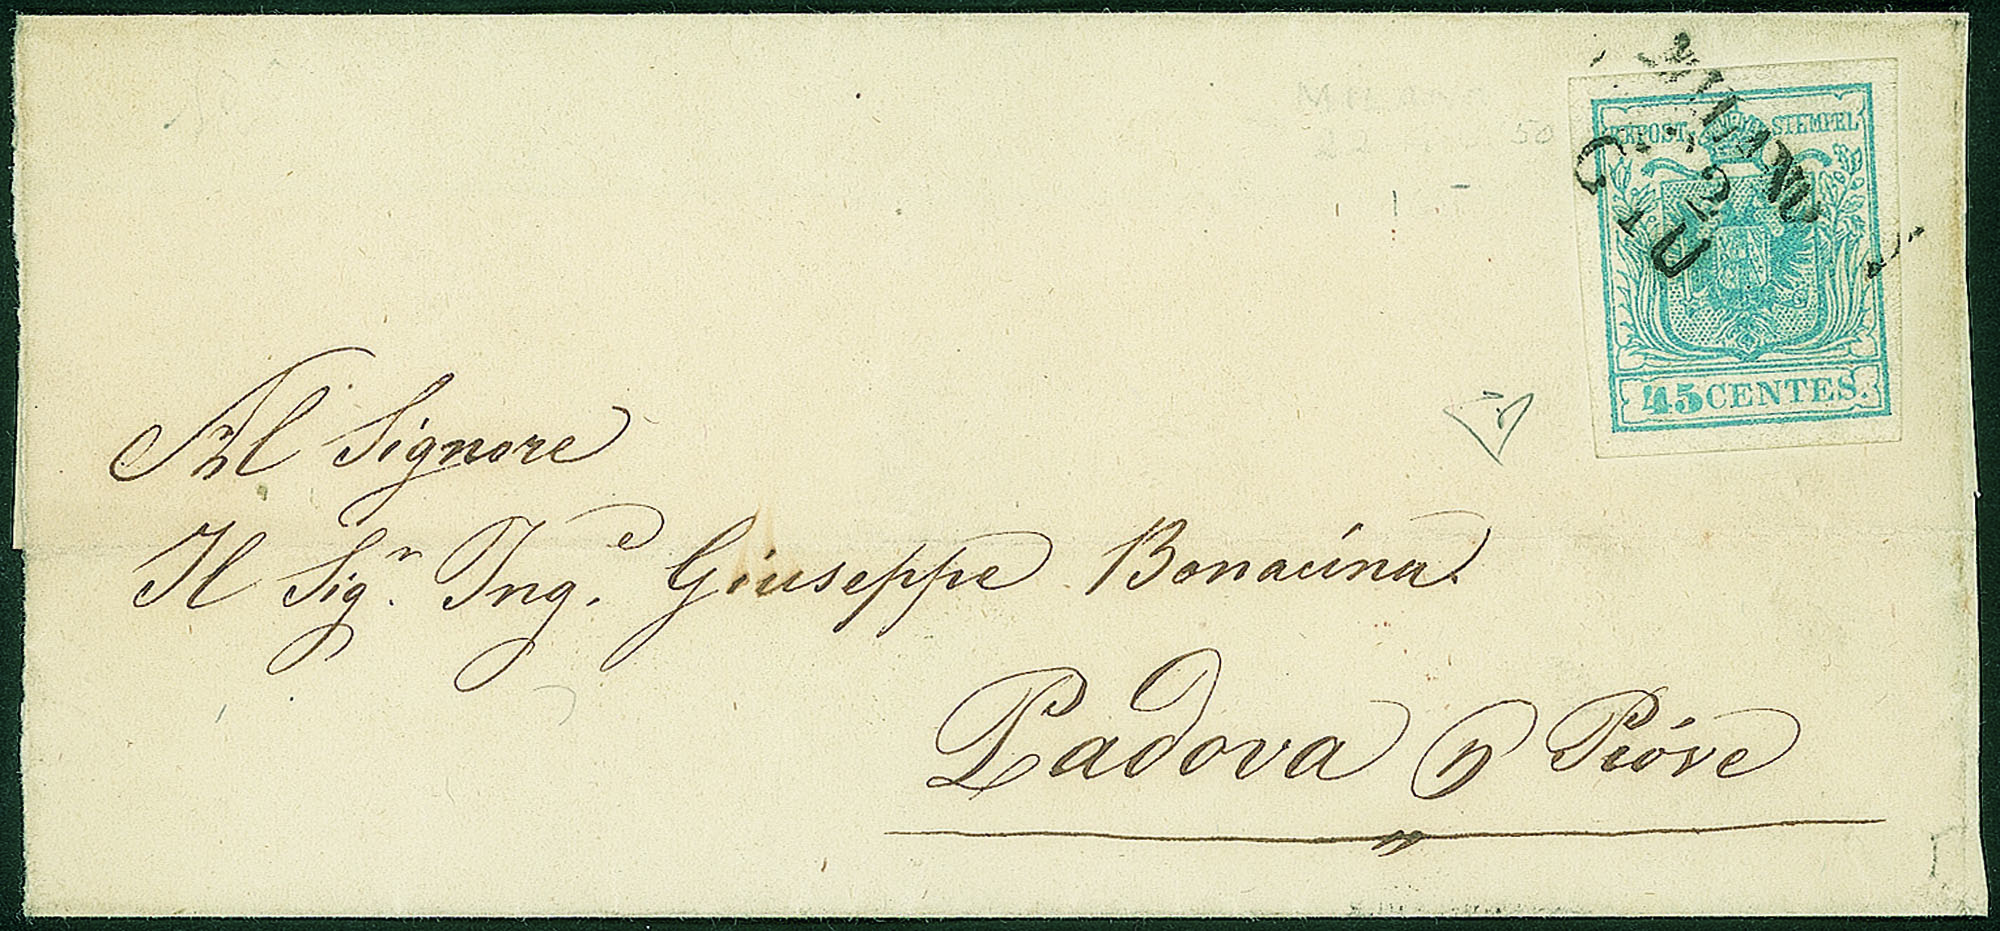 MILANO
GIU
2
KKPOST-STEMPEL
45 CENTES.
50
Al Signore
Il Sigr. Inge. Giuseppe Bonacina
Padova p Pióve